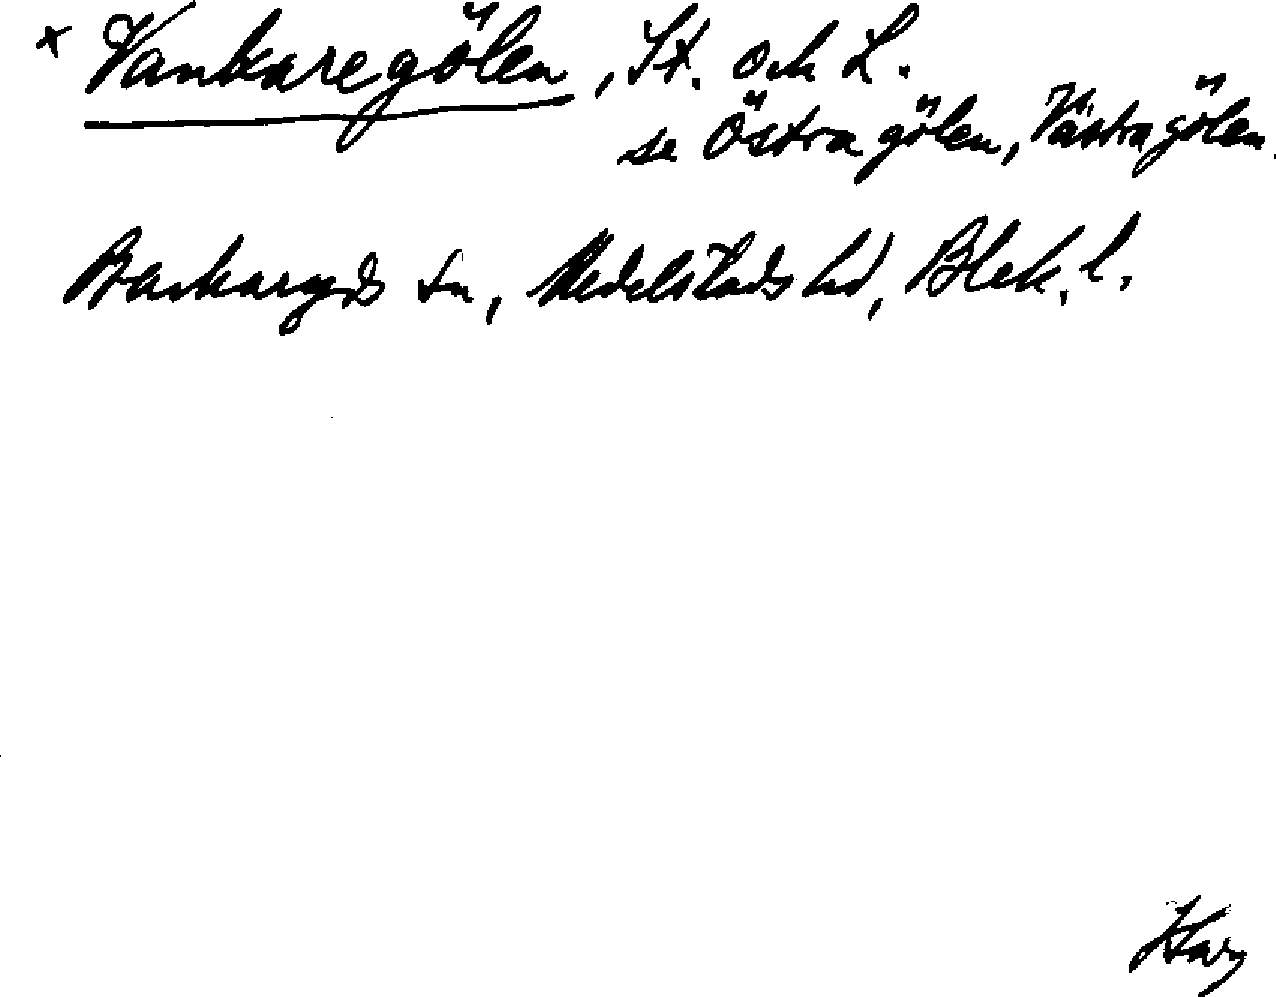 x Vankaregölen, St. och L.
se Östra gölen, Västra gölen.
Backaryds sn, Medelstads hd, Blek. l.